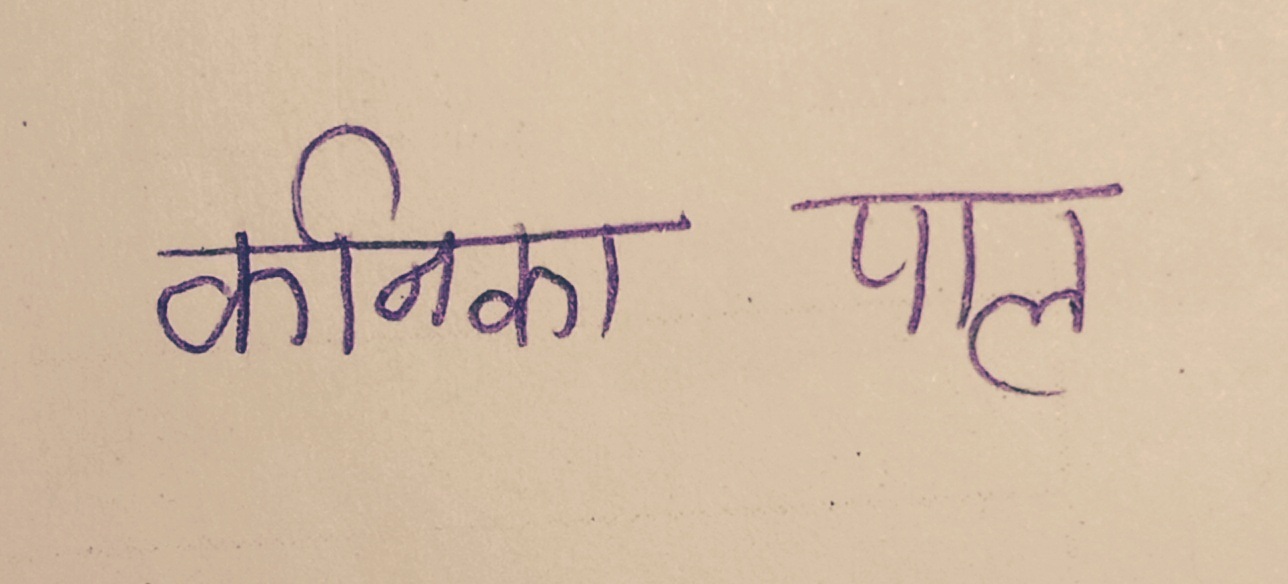 कनिका पाल